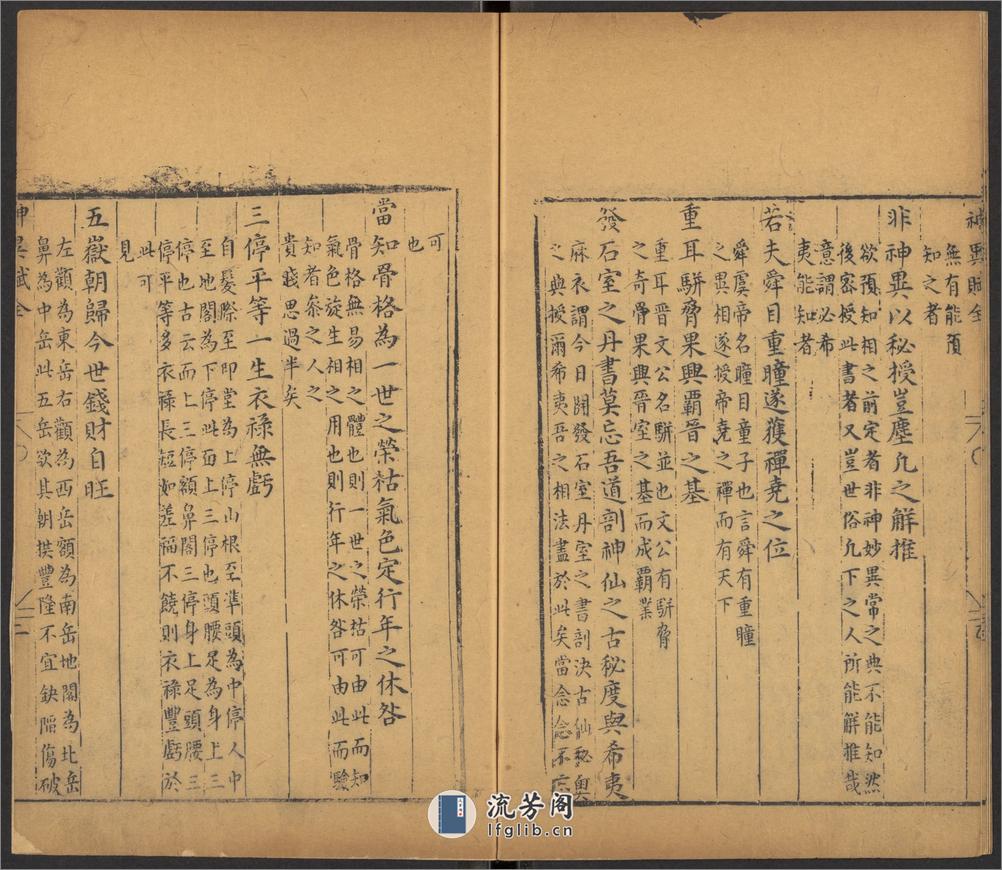 神異賦全
無有能預
知之者
非神異以秘授豈塵凢之解推
欲預知相之前定者非神妙異常之典不能知然
後容授此書者又豈世俗凢下之人所能解推哉
意謂必希
夷能知者
若夫舜目重瞳遂獲禪堯之位
舜虞帝名瞳目童子也言舜有重瞳
之異相遂授帝堯之禪而有天下
重耳駢脅果興霸晉之基
重耳晉文公名駢並也文公有駢脅
之奇骨果興晉室之基而成霸業
發石室之丹書莫忘吾道剖神仙之古秘度與希夷
麻衣謂今日開發石室丹室之書剖決古仙秘奥
之典授爾希夷吾之相法盡於此矣當念念不忘
可
也
當知骨格為一世之榮枯氣色定行年之休咎
骨格無易相之體也則一世之榮枯可由此而知
氣色旋生相之用也則行年之休咎可由此而驗
知者叅之人之
貴賤思過半矣
三停平等一生衣祿無虧
自髮際至印堂為上停山根至準頭為中停人中
至地閣為下停此面上三停也頭腰足為身上三
停也古云面上三停額鼻閣三停身上足頭腰三
停平等多衣祿長短如差福不饒則衣祿豐虧於
此可
見
五嶽朝歸今世錢財自旺
左顴為東岳右顴為西岳額為南岳地閣為北岳
鼻為中岳此五岳欲其朝拱豐隆不宜缺陷傷破
神異賦全
流芳阁
lfglib.cn